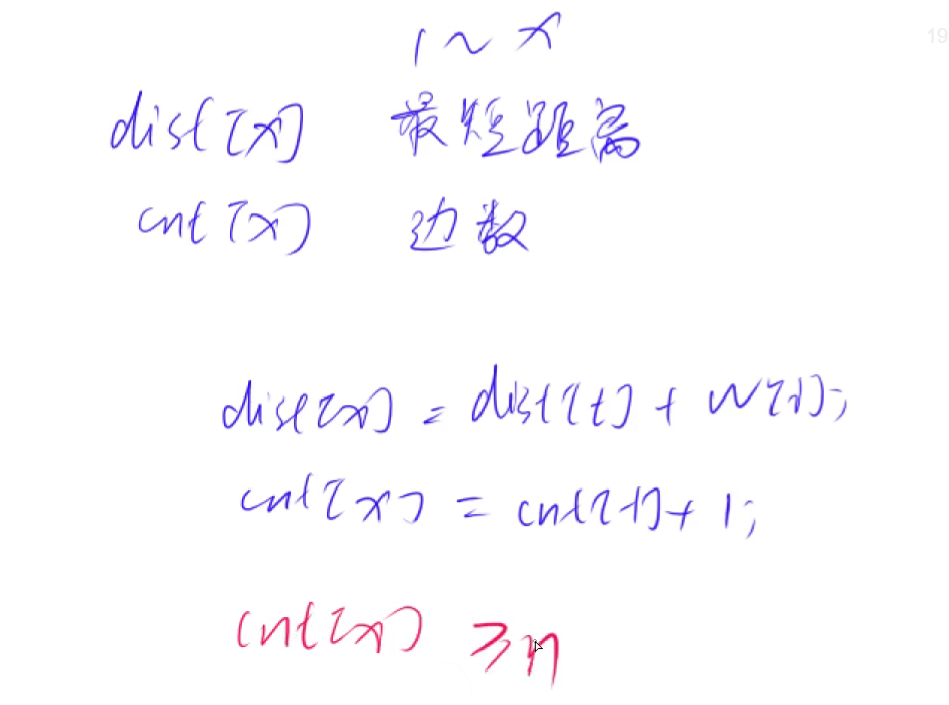 1 ~ x
19
dist[x] 最短距离
cnt[x] 边数
dist[x] = dist[t] + w[i];
cnt[x] = cnt[t] + 1;
cnt[x] ≥ n